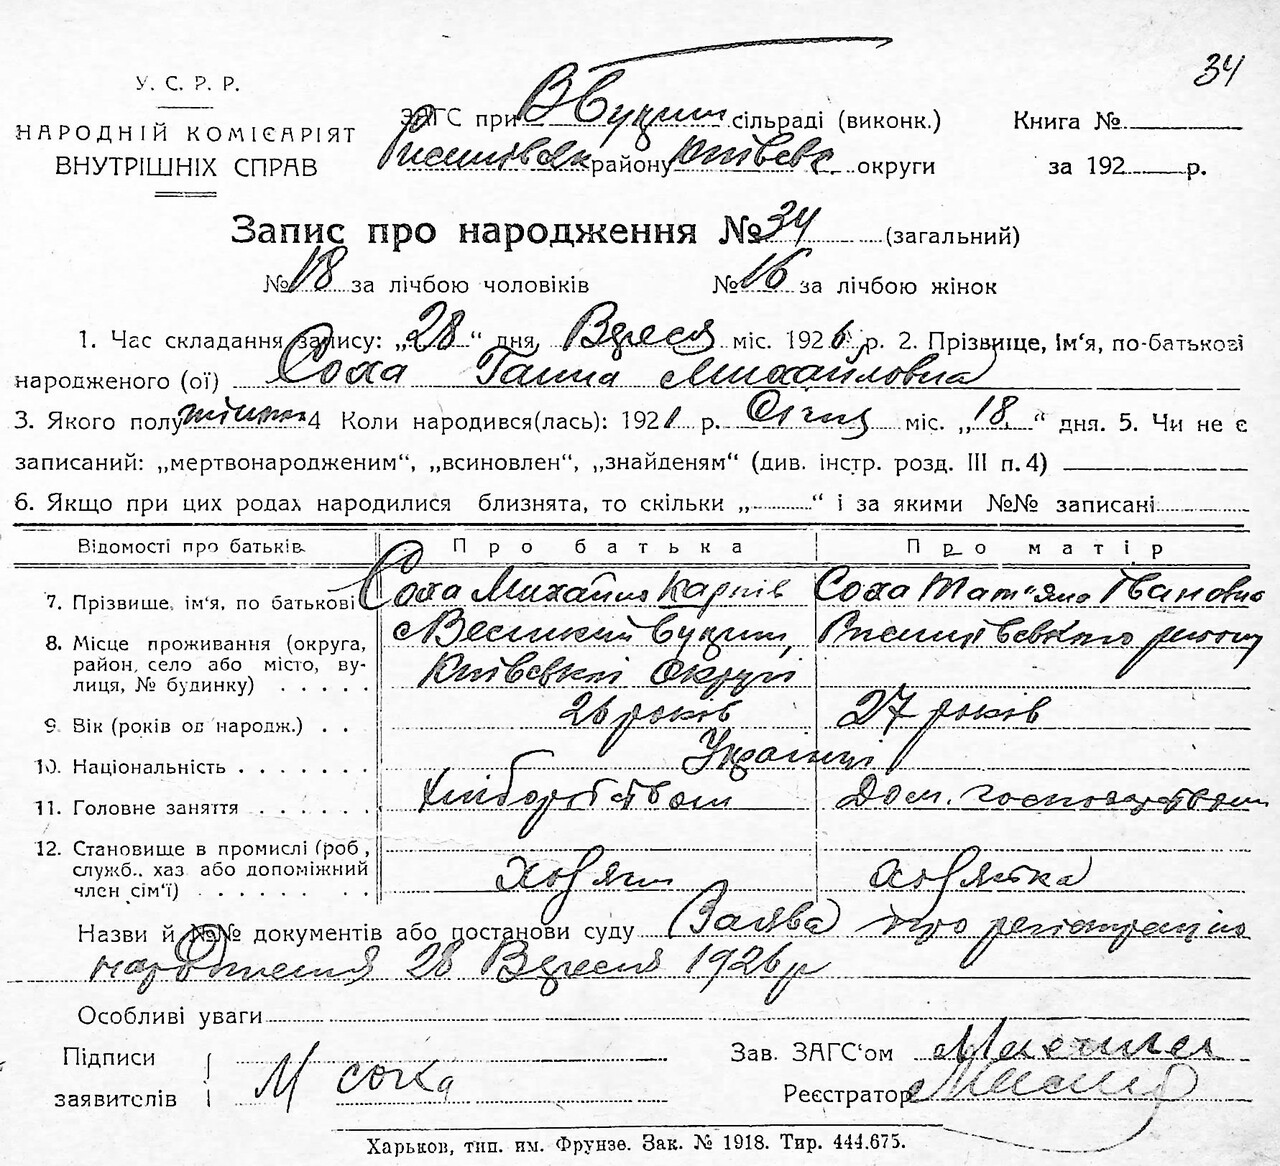 34
У. С. Р. Р.
НАРОДНІЙ КОМІСАРІЯТ
ВНУТРІШНІХ СПРАВ
ЗАГС при ВБуцни сільраді (виконк.)
району Київськ округи
Книга №
за 192 р.
Запис про народження № 34 (загальний)
№ 18 за лічбою чоловіків № 16 за лічбою жінок
1. Час складання запису: „28“ дня Вереся міс. 1926 р. 2. Прізвище, ім‘я, по-батькові
народженого (ої) Соха Ганна Михайловна
3. Якого полу жіноч 4 Коли народився(лась): 1921 р. Січня міс. „18“ дня. 5. Чи не є
записаний: „мертвонародженим“, „всиновлен“, „знайденям“ (див. інстр. розд. III п. 4)
6. Якщо при цих родах народилися близнята, то скільки „ “ і за якими №№ записані
Відомості про батьків Про батька Про матір
7. Прізвище, ім‘я, по батькові Соха Михайло Карпів Соха Тат‘яна Івановна
8. Місце проживання (округа, Великий Букрин, району
район, село або місто, ву- Київської Округі
лиця, № будинку) . . . . .
9. Вік (років од народж.) . . 26 років 27 років
10. Національність . . . . . . . Українці
11. Головне заняття . . . . . . Хліборобством Дом. господарством
12. Становище в промислі (роб.,
служб., хаз або допоміжний Хозяин хозяйка
член сім‘ї) . . . . . . . .
Назви й №№ документів або постанови суду Заява про регістрацію
народження 28 Вересня 1926 р
Особливі уваги
Підписи
заявителів М соха
Зав. ЗАГС‘ом
Реєстратор
Харьков, тип. им. Фрунзе. Зак. № 1918. Тир. 444.675.